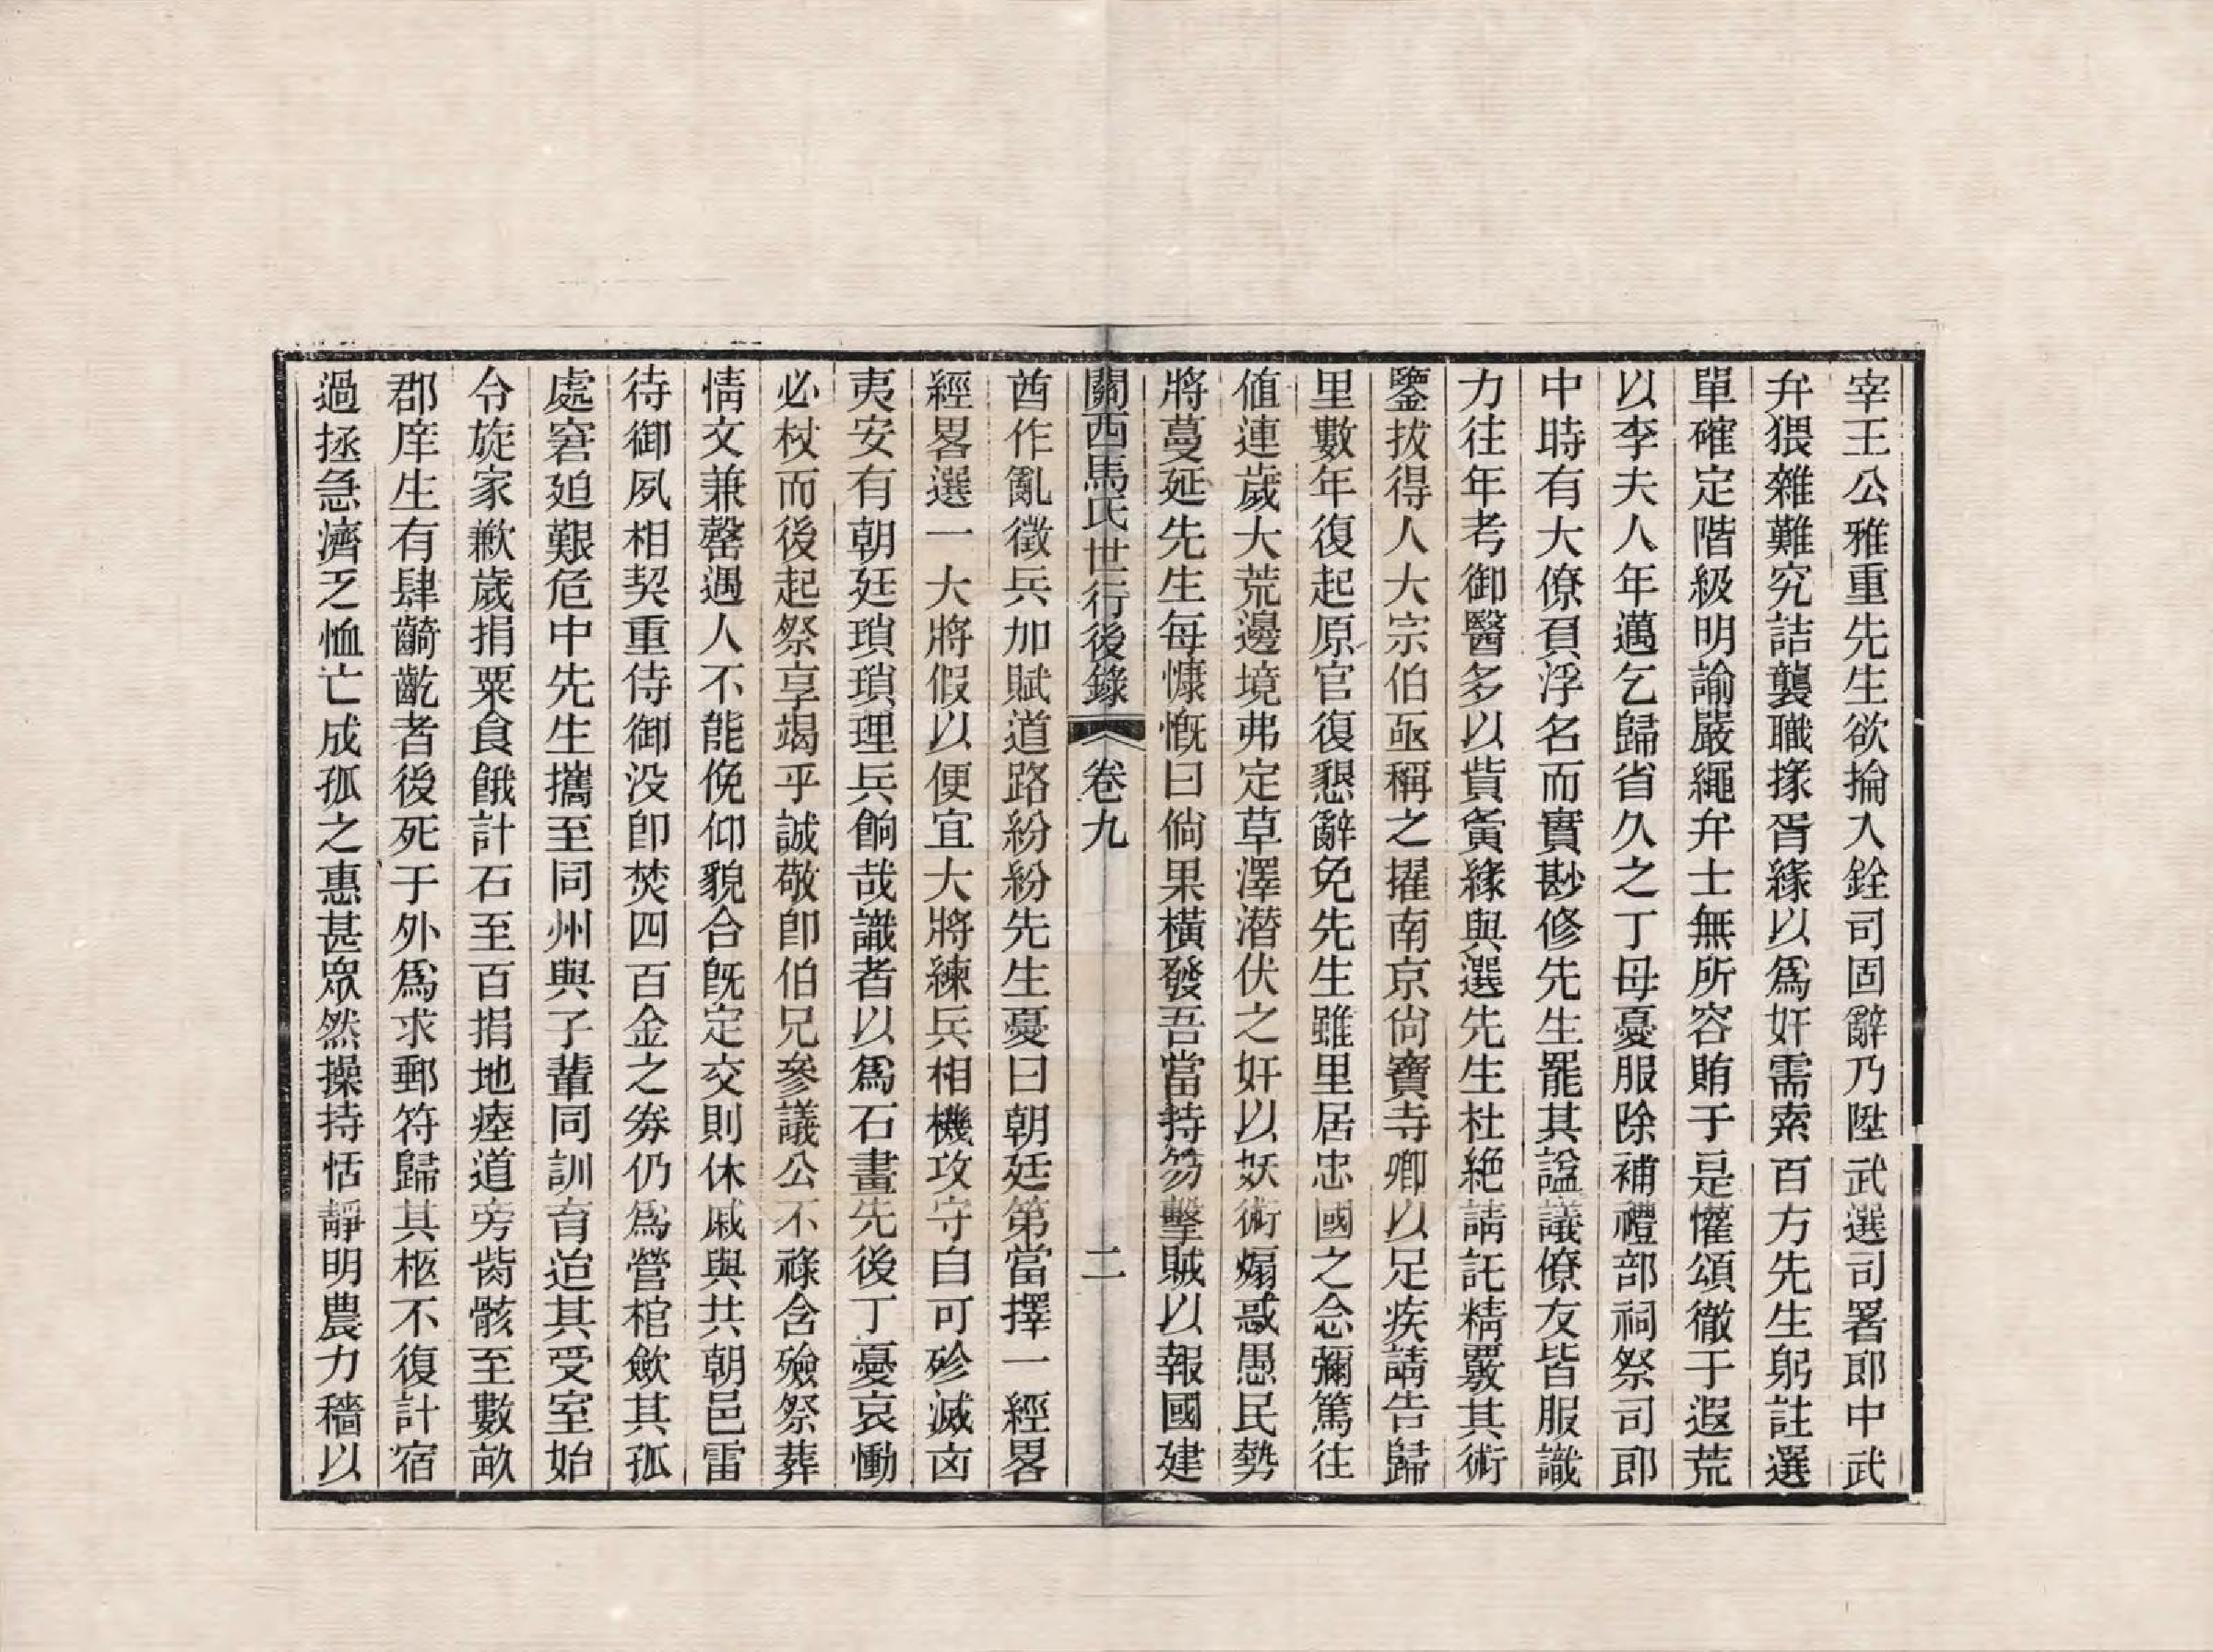 宰王公雅重先生欲掄入銓司固辭乃陞武選司署郎中武
弁猥雜難究詰襲職掾胥緣以爲奸需索百方先生躬註選
單確定階級明諭嚴繩弁士無所容賄于是懽頌徹于遐荒
以李夫人年邁乞歸省久之丁母憂服除補禮部祠祭司郎
中時有大僚負浮名而實尠修先生罷其諡議僚友皆服識
力往年考御醫多以貲夤緣與選先生杜絕請託精覈其術
鑒拔得人大宗伯亟稱之擢南京尙寶寺卿以足疾請告歸
里數年復起原官復懇辭免先生雖里居忠國之念彌篤往
値連歲大荒邊境弗定草澤潛伏之奸以妖術煽惑愚民勢
將蔓延先生每慷慨曰倘果橫發吾當持笏擊賊以報國建
關西馬氏世行後錄 卷九 二
酋作亂徵兵加賦道路紛紛先生憂曰朝廷第當擇一經畧
經畧選一大將假以便宜大將練兵相機攻守自可殄滅卤
夷安有朝廷瑣瑣理兵餉哉識者以爲石畫先後丁憂哀慟
必杖而後起祭享竭乎誠敬卽伯兄參議公不祿含殮祭葬
情文兼罄遇人不能俛仰貌合旣定交則休戚與共朝邑雷
待御夙相契重侍御没卽焚四百金之劵仍爲營棺歛其孤
處窘廹艱危中先生攜至同州與子輩同訓育迨其受室始
令旋家歉歲捐粟食餓計石至百捐地瘞道旁胔骸至數畝
郡庠生有肆齮齕者後死于外爲求郵符歸其柩不復計宿
過拯急濟乏恤亡成孤之惠甚眾然操持恬靜明農力穡以